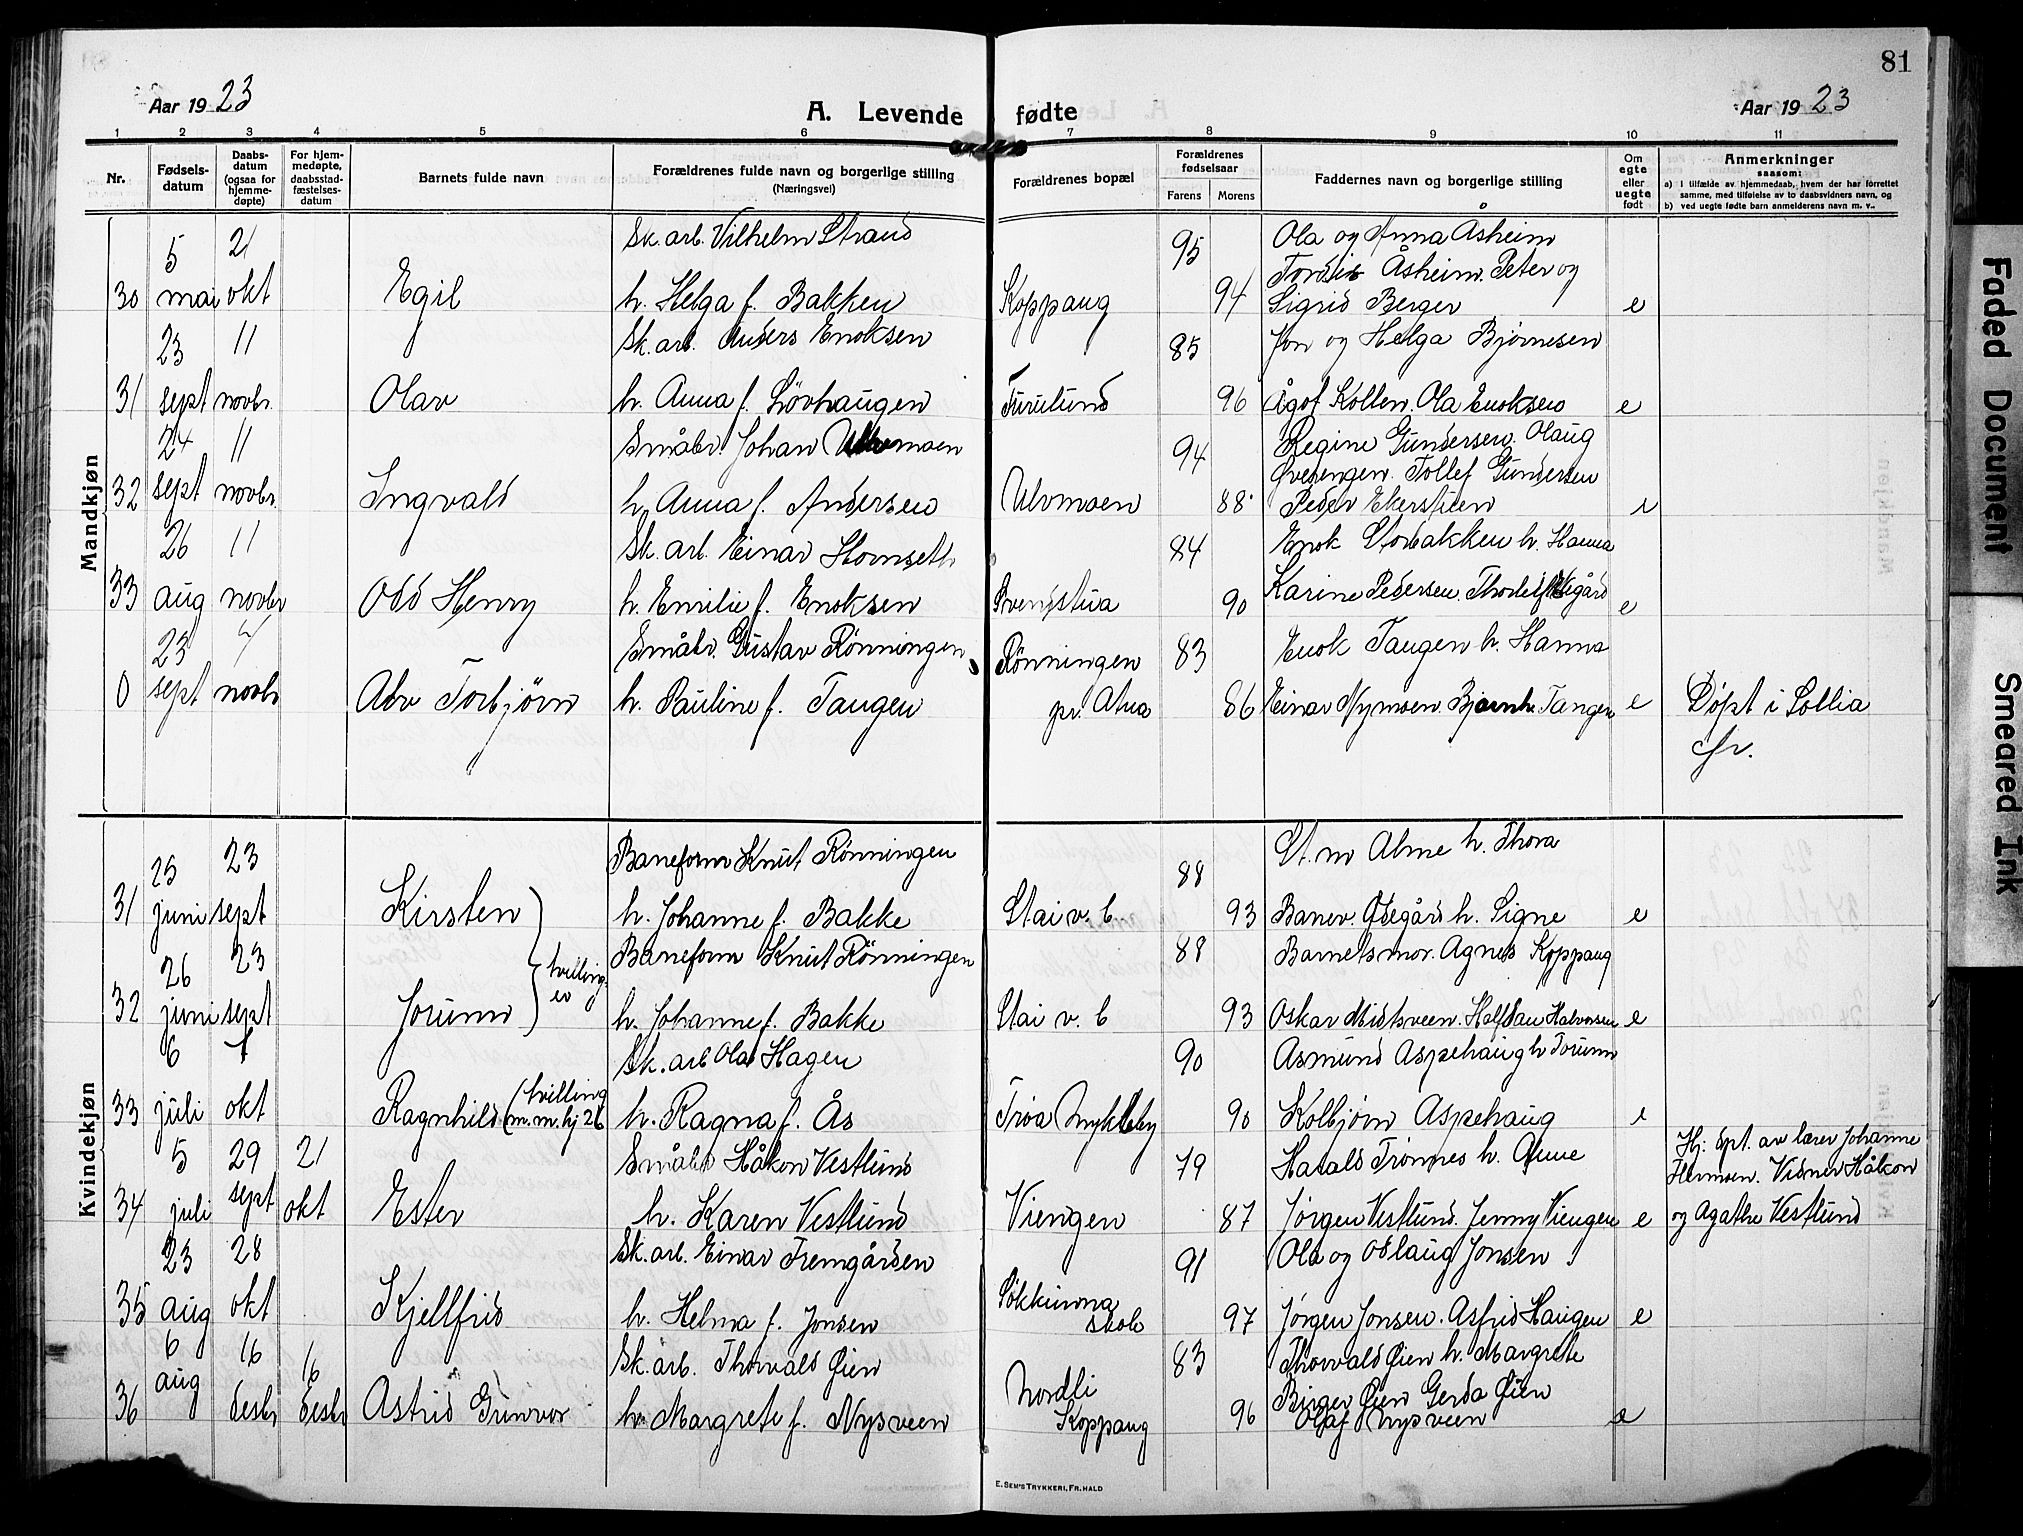 81
Aar 1923
A. Levende fødte
Aar 1923
1 2 3 4 5 6 7 8 9 10 11
Nr.
Fødsels-
datum
Daabs-
datum
(ogsaa for
hjemme-
døpte)
For hjem-
medøpte,
daabsstad-
fæstelses-
datum
Barnets fulde navn
Forældrenes fulde navn og borgerlige stilling
(Næringsvei)
Forældrenes bopæl
Forældrenes
fødselsaar
Farens Morens
Faddernes navn og borgerlige stilling
Om
egte
eller
uegte
født
Anmerkninger
saasom:
a) I tilfælde av hjemmedaab, hvem der har forrettet
samme, med tilføielse av to daabsvidners navn, og
b) ved uegte fødte barn anmelderens navn m. v.
Mandkjøn
5 21 Sk. arb. Vilhelm Strand 95 Ola og Anna Åsheim
Tordis Åsheim. Peter og
30 mai okt Egil h. Helga f. Bakken Koppang 94 Sigrid Berger e
23 11 Sk. arb. Anders Enoksen 85 Jon og Helga Bjørnesen
31 sept novbr. Olav h. Anna f. Løvhaugen Furulund 96 Ågot Kollen. Ola Enoksen e
24 11 Småbr. Johan Ulvmoen 94 Regine Gundersen. Olaug
Øvesengen. Tollef Gundersen
32 sept novbr Ingvald h. Anna f. Andersen Ulvmoen 88 Peder Ekerstuen e
26 11 Sk. arb. Einar Hornseth 84 Enok Storbakken h. Hanna
33 aug novbr Odd Henry h. Emilie f. Enoksen Svenstua 90 Karine Pedersen. e
23 4 Småbr. Gustav Rønningen Rønningen 83 Enok Tangen h. Hanna
0 sept novbr Alv Torbjørn h. Pauline f. Tangen pr. Atna 86 Einar Nymoen. Bjarnh. Tangen e Døpt i Sollia
Kvindekjøn
25 23 Baneform Knut Rønningen 88 St. m Alme h. Thora
31 juni sept Kirsten h. Johanne f. Bakke Stai v. b. 93 Banev. Ødegård h. Signe e
tvilling-
er
26 23 Baneform Knut Rønningen 88 Barnets mor. Agnes Koppang
32 juni sept Jorunn h. Johanne f. Bakke Stai v. b 93 Oskar Midtsveen. Halfdan Halvorsen e
6 Sk. arb Ola Hagen 90 Asmund Aspehaug h Torunn
33 juli okt Ragnhild (tvilling
m. m. hj 26 h. Ragna f. Ås Trøa Mykleby 90 Kolbjørn Aspehaug e
5 29 21 Småbr Håkon Vestlund 79 Harald Trønnes h. Anne
34 juli sept okt Ester h. Karen Vestlund Viengen 87 Jørgen Vestlund. Jenny Viengen e
Hj: dpt. av lærer Johanne
Hermoen. Vidner Håkon
og Agathe Vestlund
23 28 Sk. arb. Einar Fremgården 91 Ola og Oslaug Jonsen
35 aug okt Kjellfrid h. Helma f. Jonsen Søkkunna
skole 97 Jørgen Jonsen. Astrid Haugen e
6 16 16 Sk. arb. Thorvald Øien 83 Thorvald Øien h. Margrete
Birger Øien Gerda Øien
36 aug desbr desbr Astrid Gunvor h. Margrete f. Nysveen Nordli
Koppang 96 Olaf Nysveen e
E. SEM'S TRYKKERI, FR. HALD
Faded Document
Smeared Ink